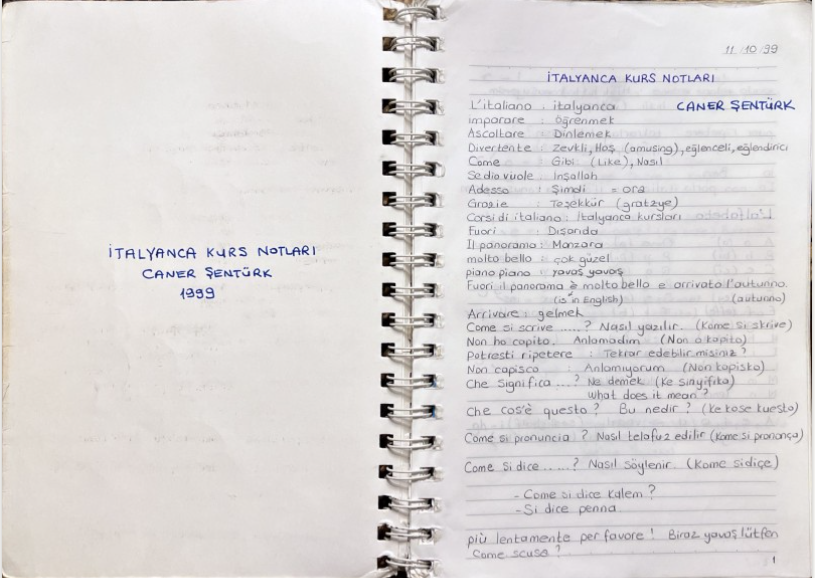 İTALYANCA KURS NOTLARI
CANER ŞENTÜRK
1999
11/10/99
İTALYANCA KURS NOTLARI
L'italiano : italyanca CANER ŞENTÜRK
imparare : Öğrenmek
Ascoltare : Dinlemek
Divertente : Zevkli, Hoş (amusing), eğlenceli, eğlendirici
Come : Gibi (Like), Nasıl
Se dio vuole : İnşallah
Adesso : Şimdi = ora
Grazie : Teşekkür (gratzye)
Corsi di italiano : Italyanca kursları
Fuori : Dışarıda
Il panorama : Manzara
molto bello : çok güzel
piano piano : yavaş yavaş
Fuori il panorama è molto bello e arrivato l'autunno.
(is in English) (autunno)
Arrivare : gelmek
Come si scrive .....? Nasıl yazılır. (Kome si skrive)
Non ho capito. Anlamadım (Non o kapito)
Potresti ripetere : Tekrar edebilir misiniz?
Non capisco : Anlamıyorum (Non kapisko)
Che significa ....? Ne demek (Ke sinyifika)
What does it mean?
Che cos'è questo? Bu nedir? (Ke kose kuesto)
Come si pronuncia ? Nasıl telafuz edilir (Kome si pronança)
Come si dice ......? Nasıl söylenir. (Kome sidiçe)
- Come si dice kalem?
- Si dice penna
più lentamente per favore! Biraz yavaş lütfen
Come scusa?
1